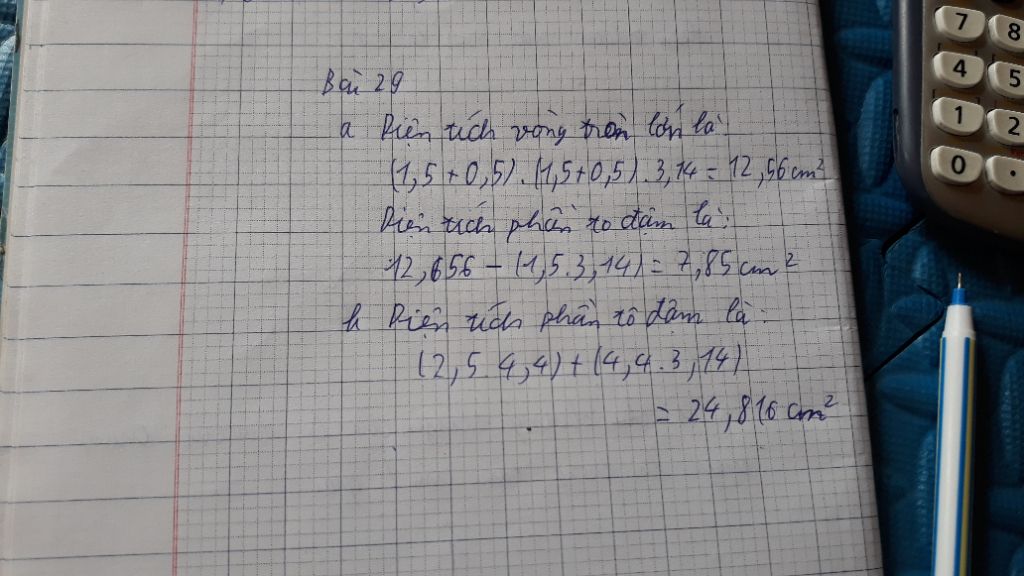 Bài 29
a Diện tích vòng tròn lớn là
(1,5 + 0,5) . (1,5 + 0,5) . 3,14 = 12,56 cm²
Diện tích phần to đậm là:
12,656 − (1,5.3,14) = 7,85 cm²
b Diện tích phần tô đậm là:
(2,5 4,4) + (4,4.3,14)
= 24,816 cm²
7 8
4 5
1 2
0 .